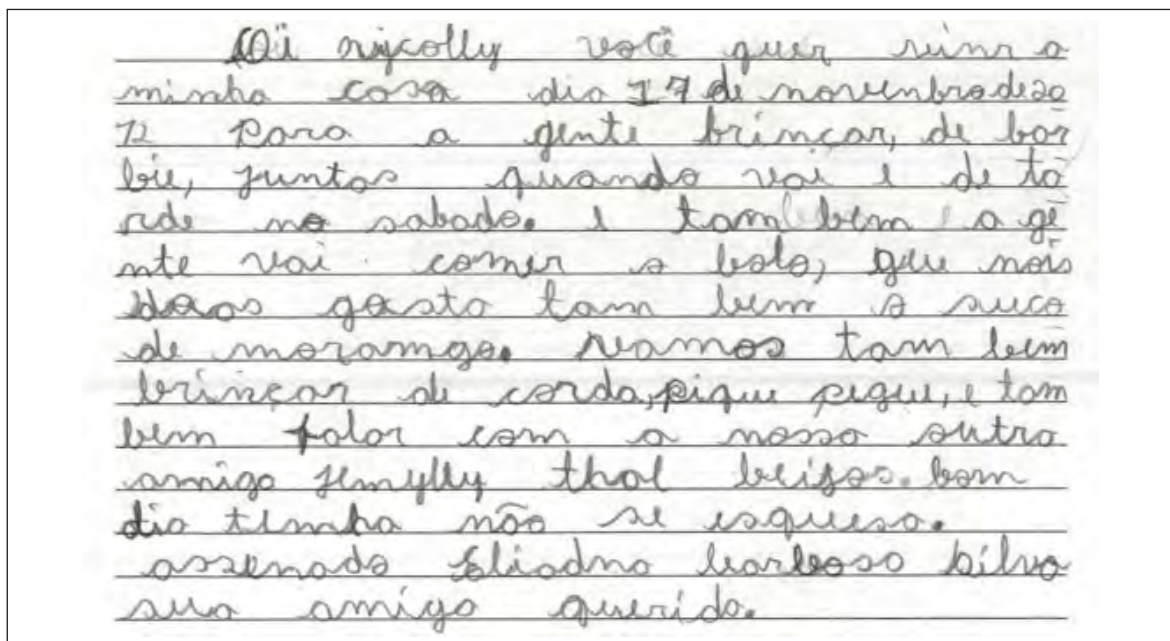 Oii nycolly você quer vim a
minha casa dia 17 de novenbro de 20
12 Para a gente brincar, de bar
bie, juntas quando vai e de ta
rde no sabado. e tam bem a ge
nte vai comer o bolo, que nois
duas gosta tam bem o suco
de moramgo. vamos tam bem
brincar de corda, pique pegue, e tam
bem falar com a nossa outra
amiga Jemylly thal beijos. bom
dia tenha não se esquesa.
assenado Eliadna barbosa Silva
sua amiga querida.